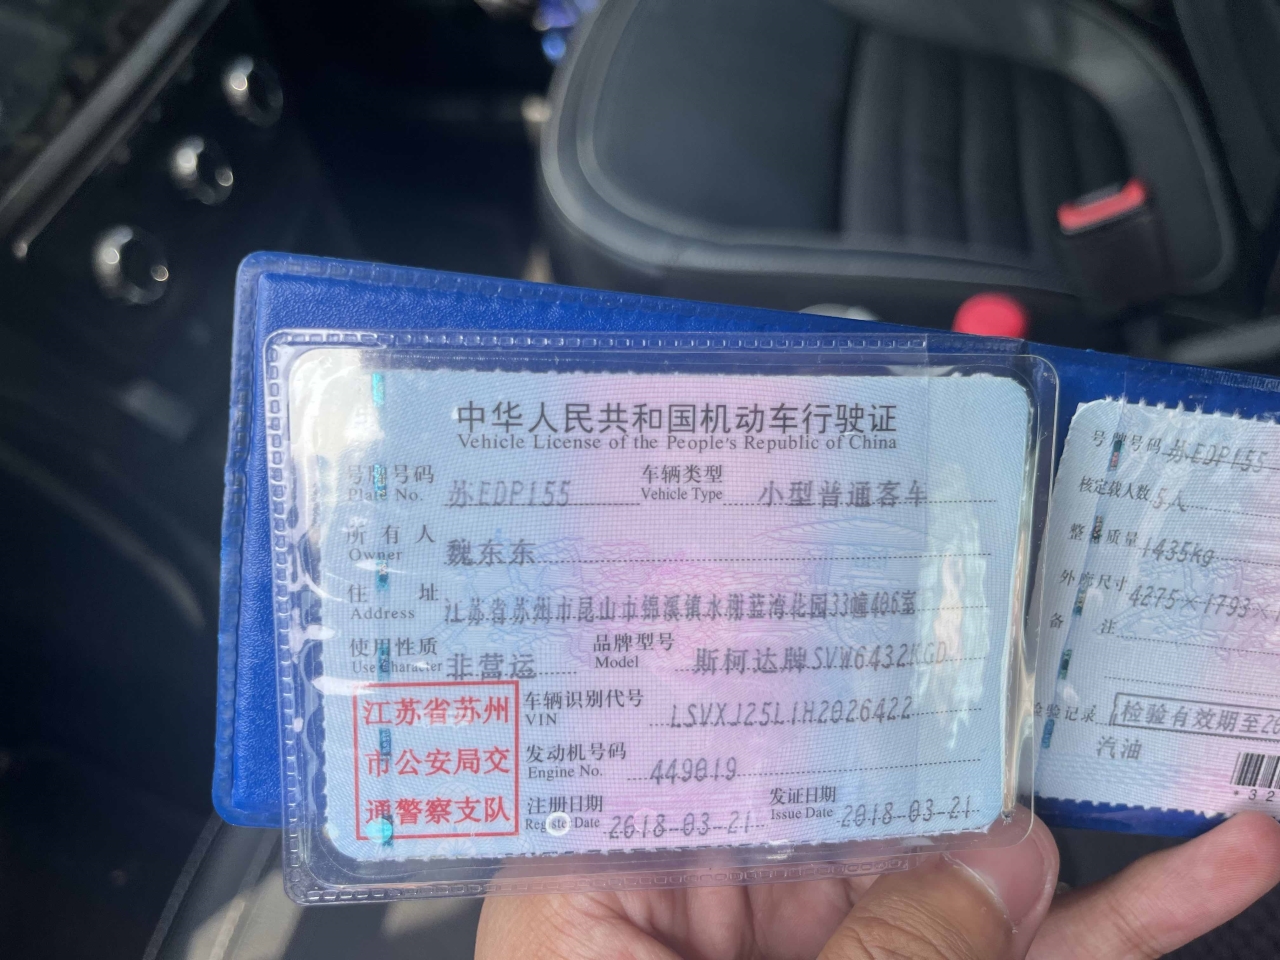 中华人民共和国机动车行驶证
Vehicle License of the People's Republic of China
号牌号码 苏EDP155 车辆类型 小型普通客车
Plate No. Vehicle Type
所有人 魏东东
Owner
住址 江苏省苏州市昆山市锦溪镇水湖蓝湾花园33幢406室
Address
使用性质 非营运 品牌型号 斯柯达牌SVW6432KGD
Use Character Model
江苏省苏州
市公安局交
通警察支队
车辆识别代号 LSVXJ25L1H2026422
VIN
发动机号码 449019
Engine No.
注册日期 2018-03-21 发证日期 2018-03-21
Register Date Issue Date
号牌号码 苏EDP155
核定载人数 5人
整备质量 1435kg
外廓尺寸 4275×1793×
备注
检验记录 检验有效期至20
汽油
*32